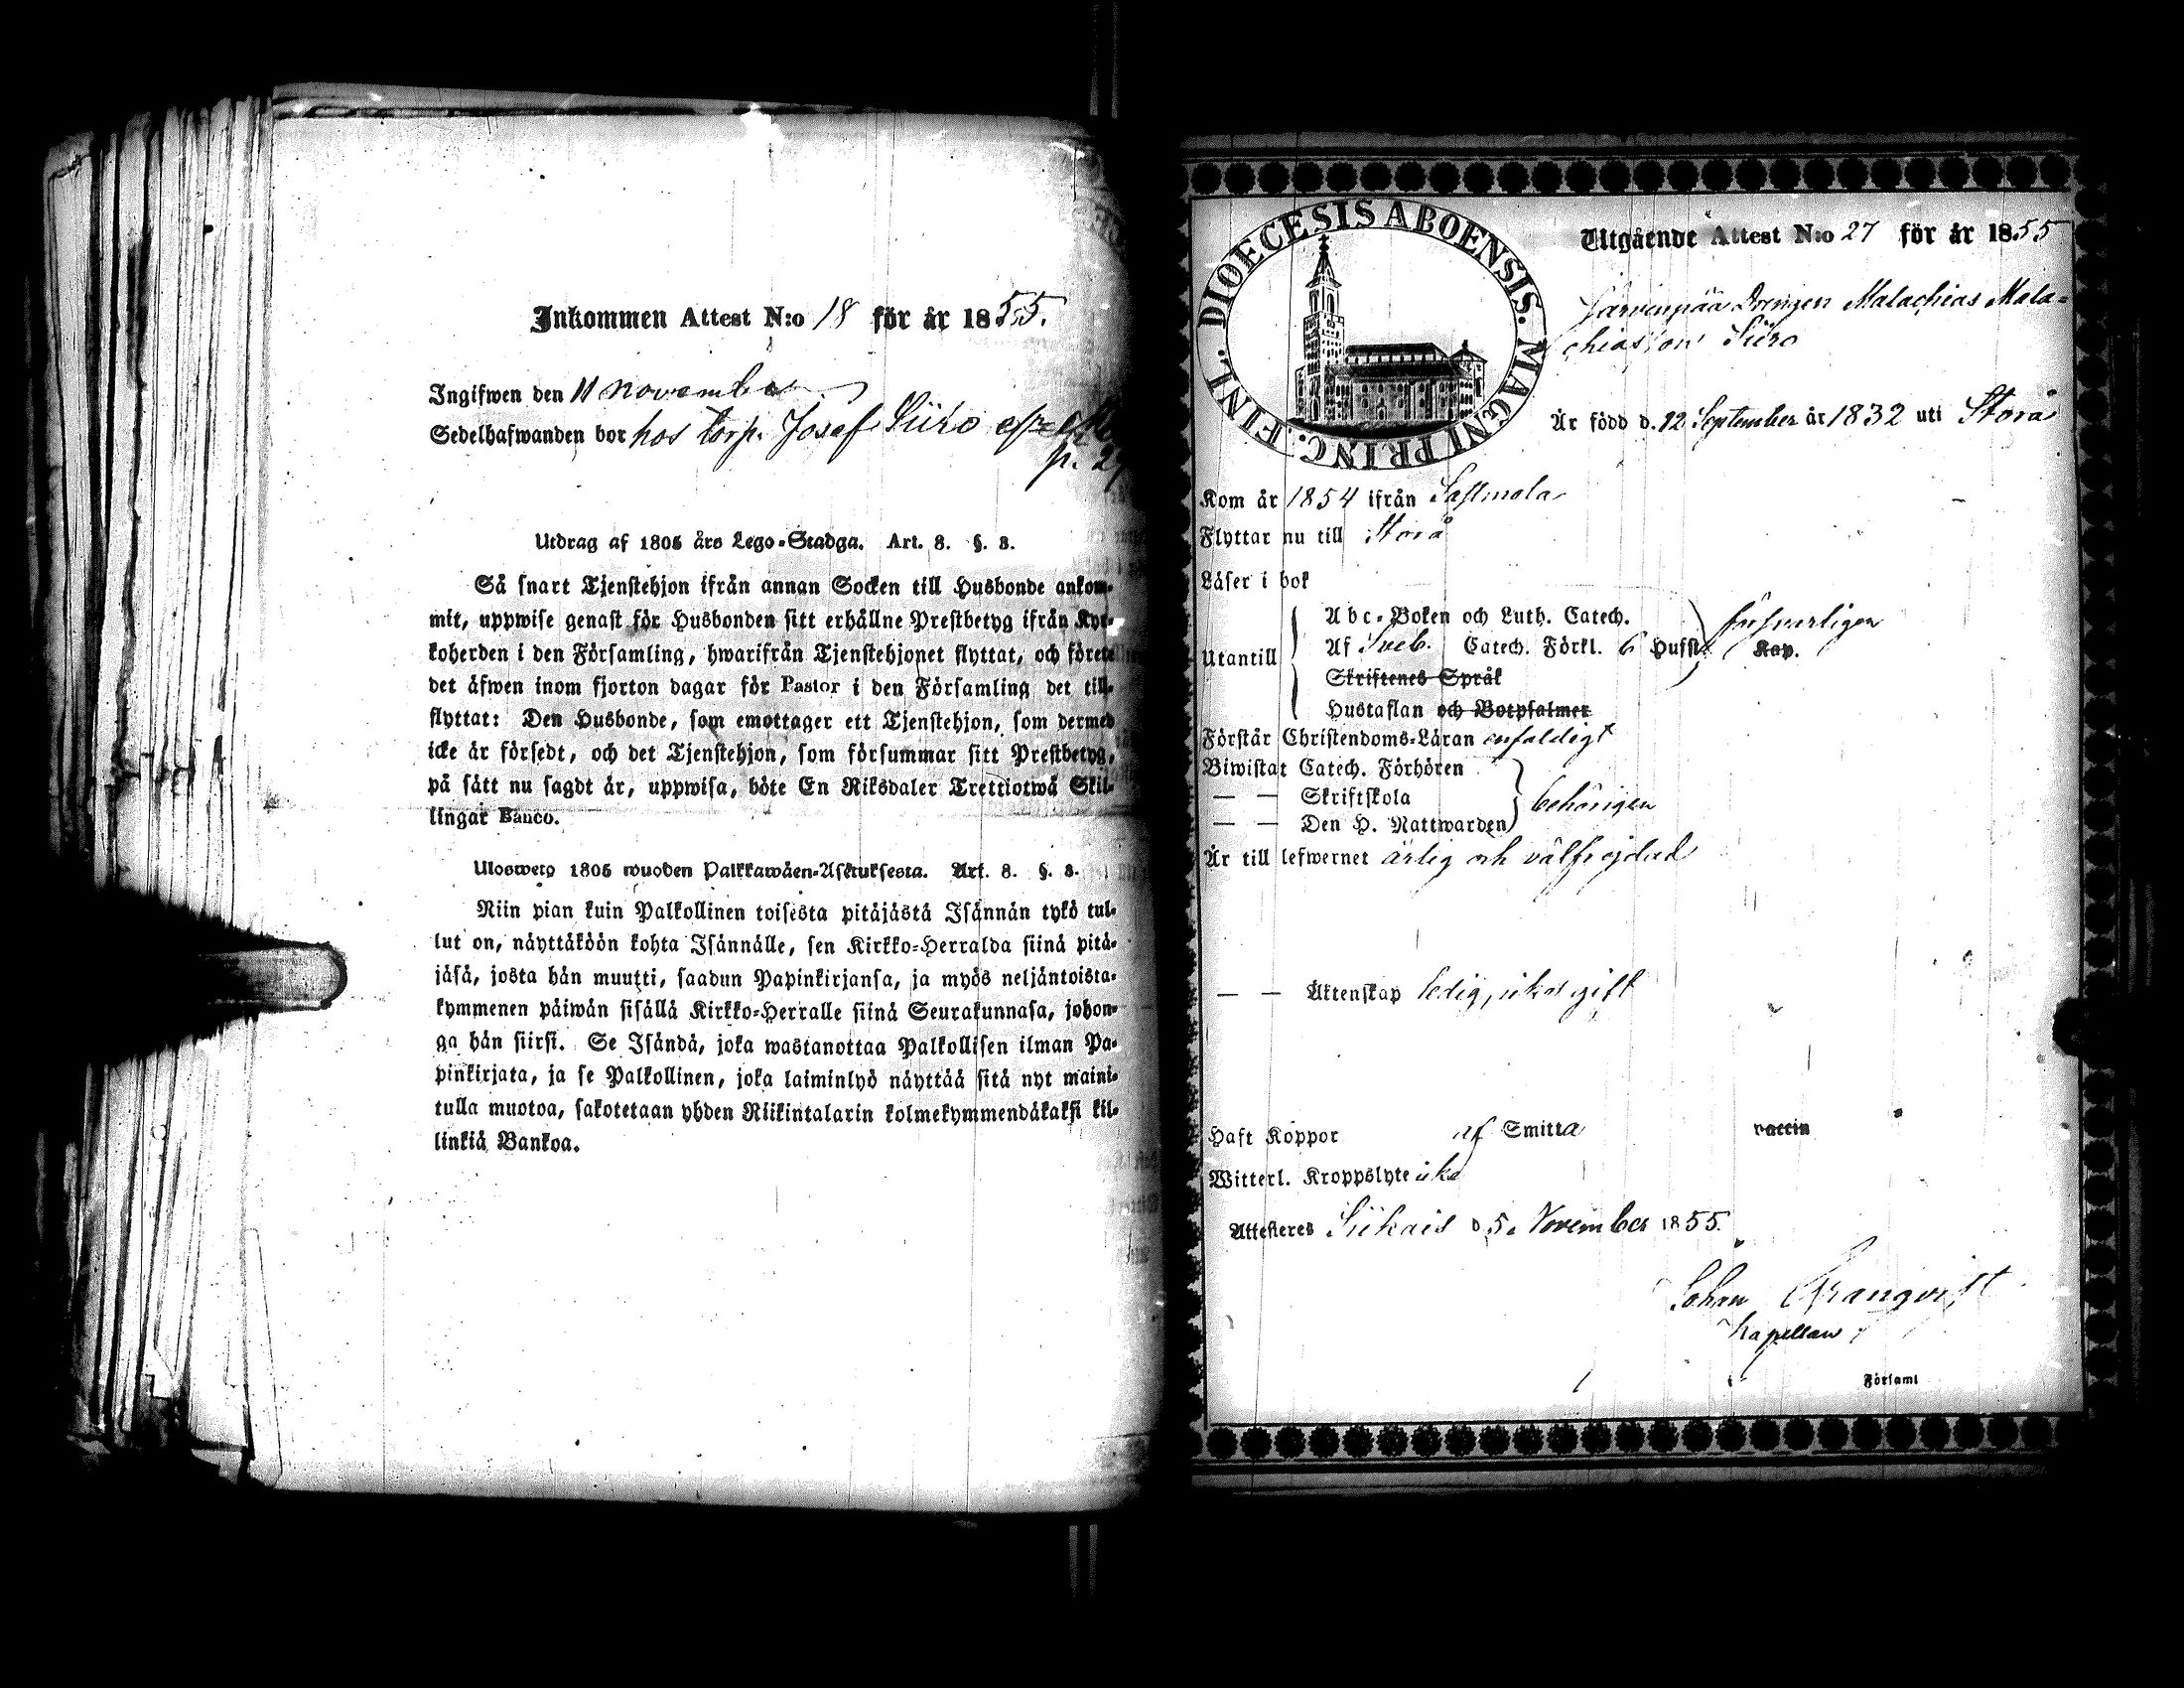 Inkommen Attest N:o 18 för år 1855.
Ingifwen den 11 november
Sedelhafwanden bor hos torp. Josef Siiro
p. 2
Utdrag af 1805 års Lego-Stadga. Art. 8. §. 3.
Så snart Tjenstehjon ifrån annan Socken till Husbonde ankom-
mit, uppwise genast för Husbonden sitt erhållne Prestbetyg ifrån Kyr-
koherden i den Församling, hwarifrån Tjenstehjonet flyttat, och förete
det äfwen inom fjorton dagar för Pastor i den Församling det till-
flyttat: Den Husbonde, som emottager ett Tjenstehjon, som dermed
icke är försedt, och det Tjenstehjon, som försummar sitt Prestbetyg,
på sätt nu sagdt är, uppwisa, böte En Riksdaler Trettiotwå Skil-
lingar Banco.
Ulosweto 1805 wuoden Palkkawäen-Asetuksesta. Art. 8. §. 3.
Niin pian kuin Palkollinen toisesta pitäjästä Isännän tykö tul-
lut on, näyttäköön kohta Isännälle, sen Kirkko-Herralda siinä pitä-
jäsä, josta hän muutti, saadun Papinkirjansa, ja myös neljäntoista-
kymmenen päiwän sisällä Kirkko-Herralle siinä Seurakunnasa, johon-
ga hän siirsi. Se Isändä, joka wastanottaa Palkollisen ilman Pa-
pinkirjata, ja se Palkollinen, joka laiminlyö näyttää sitä nyt maini-
tulla muotoa, sakotetaan yhden Riikintalarin kolmekymmendäkaksi kil-
linkiä Bankoa.
DIOECESIS ABOENSIS. MAGNI PRINC. FINL.
Utgående Attest N:o 27 för år 1855
Järvenpää Drengen Malachias Mala-
chiasson Siiro
Är född d. 12 September år 1832 uti Storå
Kom år 1854 ifrån Sastmola
Flyttar nu till Storå
Läser i bok
Abc-Boken och Luth. Catech. försvarligen
Utantill Af Sveb. Catech. Förkl. 6 Hufst. Kap.
Skriftenes Språk
Hustaflan och Botpsalmer
Förstår Christendoms-Läran enfaldigt
Biwistat Catech. Förhören
— — Skriftskola behörigen
— — Den H. Nattwarden
Är till lefwernet ärlig och välfrejdad
— — Äktenskap ledig, icke gift
Haft Koppor af Smitta vaccin
Witterl. Kroppslyte icke
Attesteres Siikais d. 5 November 1855.
Johan Granqvist
Kapellan
Församl